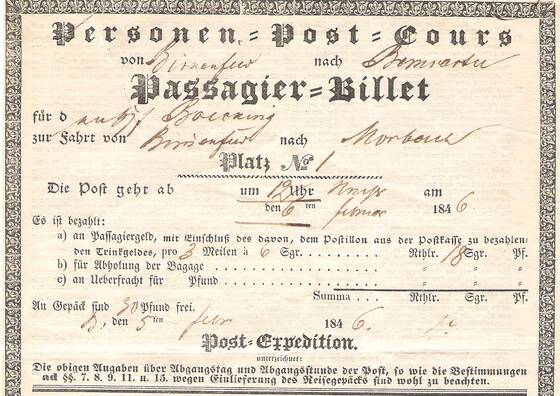 Personen=Post=Cours
von Birkenfeld nach
Passagier=Billet
für d
zur Fahrt von Birkenfeld nach Morbach
Platz No 1
Die Post geht ab um 12 Uhr am
den 6 ten Februar 1846
Es ist bezahlt:
a) an Passagiergeld, mit Einschluß des davon, dem Postillon aus der Postkasse zu bezahlen
den Trinkgeldes, pro 3 Meilen à 6 Sgr. . . . . . Rthlr. 18 Sgr. Pf.
b) für Abholung der Bagage . . . . . . . . . . . . . . . . " " "
c) an Ueberfracht für Pfund . . . . . . . . . . . . . . . . " " "
Summa . . . Rthlr. Sgr. Pf.
An Gepäck sind 30 Pfund frei.
B. den 5 ten Febr 1846.
Post=Expedition.
unterzeichnet:
Die obigen Angaben über Abgangstag und Abgangsstunde der Post, so wie die Bestimmungen
ad §§. 7. 8. 9. 11. u. 15. wegen Einlieferung des Reisegepäcks sind wohl zu beachten.